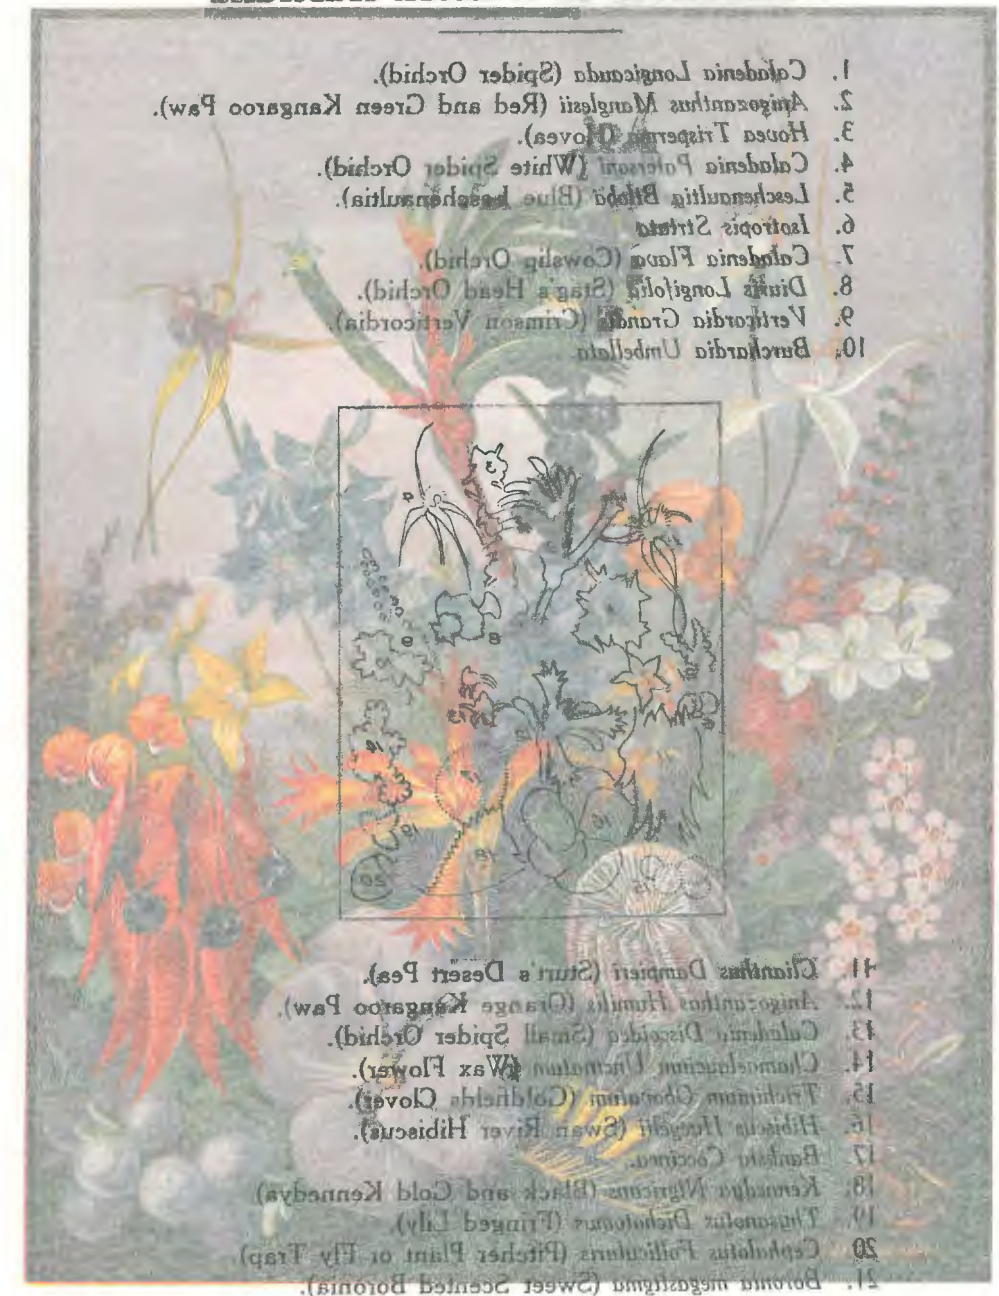 1. Caladenia Longicauda (Spider Orchid).
2. Anigozanthus Manglesii (Red and Green Kangaroo Paw).
3. Hovea Trisperma (Hovea).
4. Caladenia Patersoni (White Spider Orchid).
5. Leschenaultia Biloba (Blue Leschenaultia).
6. Isotropis Striata
7. Caladenia Flava (Cowslip Orchid).
8. Diuris Longifolia (Stag's Head Orchid).
9. Verticordia Grandis (Crimson Verticordia).
10. Burchardia Umbellata
8
9
16
18
20
11. Clianthus Dampieri (Sturt's Desert Pea).
12. Anigozanthos Humilis (Orange Kangaroo Paw).
13. Caladenia Discoidea (Small Spider Orchid).
14. Chamaelaucium Uncinatum (Wax Flower).
15. Trichinium Obovatum (Goldfields Clover).
16. Hibiscus Huegelii (Swan River Hibiscus).
17. Banksia Coccinea.
18. Kennedya Nigricans (Black and Gold Kennedya)
19. Thysanotus Dichotomus (Fringed Lily).
20. Cephalotus Follicularis (Pitcher Plant or Fly Trap).
21. Boronia megastigma (Sweet Scented Boronia).